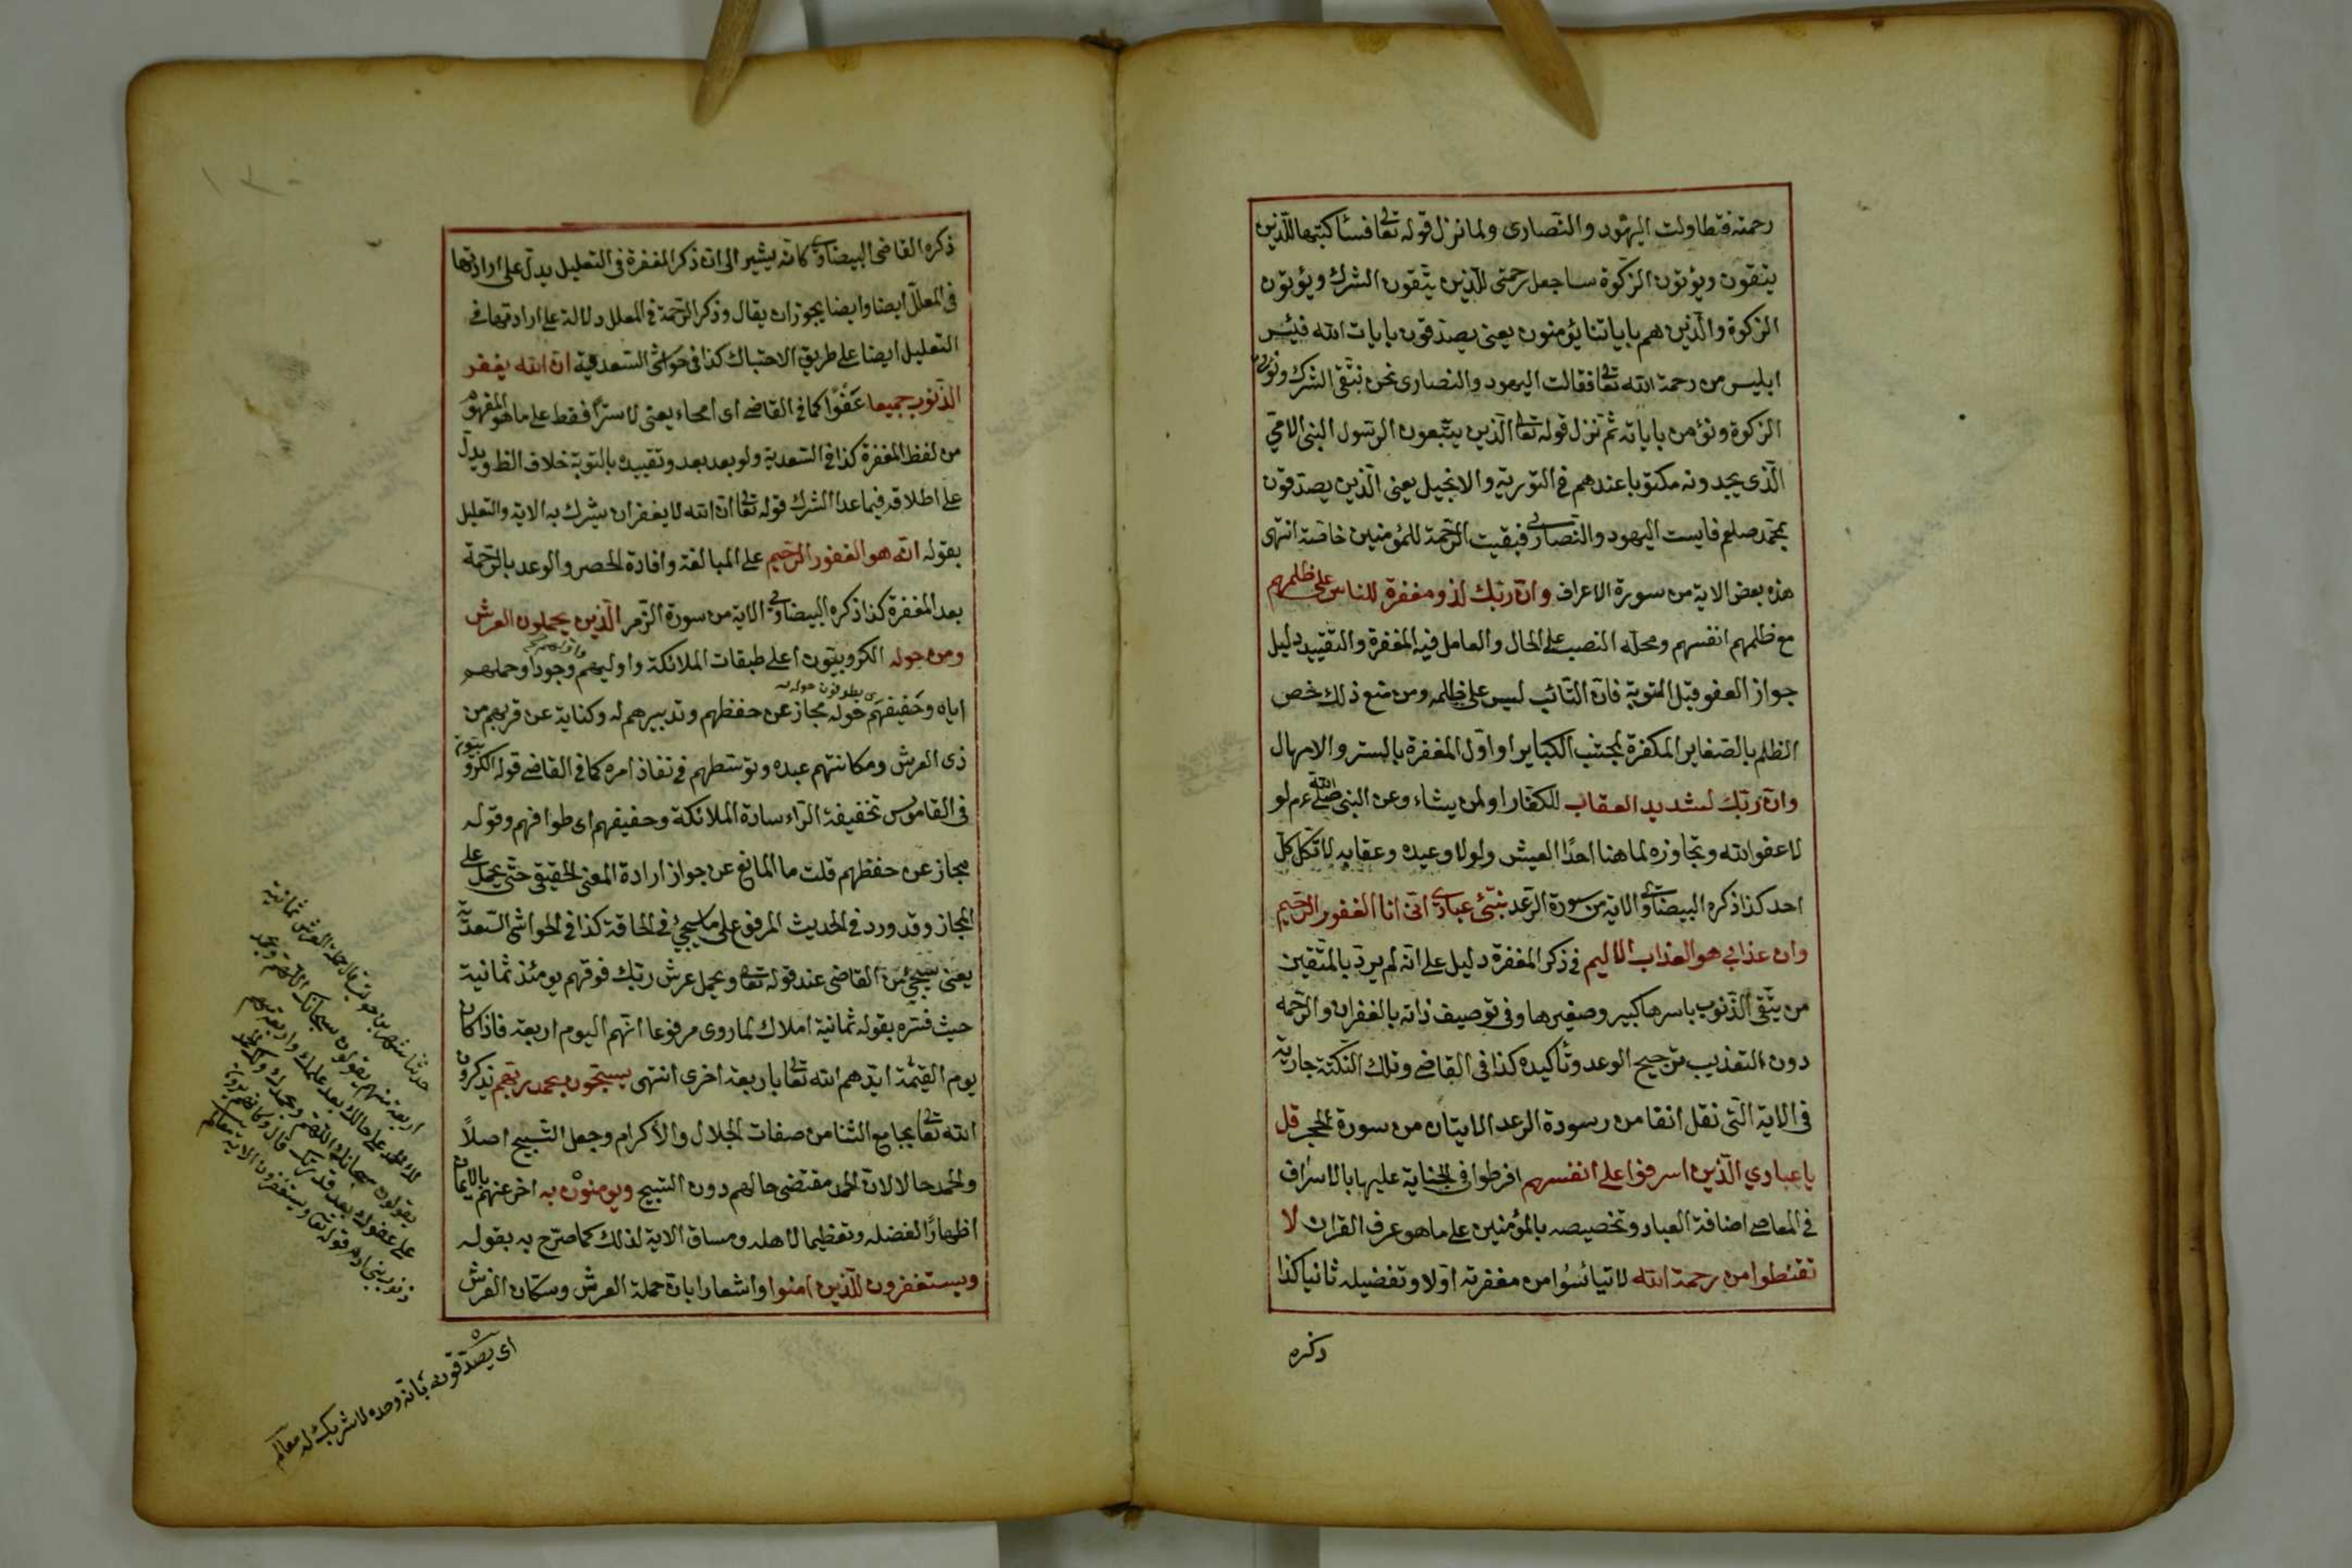 رحمته فتطاولت اليهود والنصارى ولما نزل قوله تعا فسأكتبها للذين
يتقون ويؤتون الزكوة ساجعل رحمتى للذين يتقون الشرك ويؤتون
الزكوة والذين هم باياتنا يؤمنون يعنى يصدقون بايات الله فيئس
ابليس من رحمة الله تعا فقالت اليهود والنصارى نحن نتقى الشرك ونؤتى
الزكوة ونؤمن باياته ثم نزل قوله تعا الذين يتبعون الرسول النبى الامي
الذى يجدونه مكتوبا عندهم فى التورية والانجيل يعنى الذين يصدقون
بمحمد صلعم فايست اليهود والنصارى فبقيت الرحمة للمؤمنين خاصة انتهى
هذه بعض الاية من سورة الاعراف وان ربك لذو مغفرة للناس على ظلمهم
مع ظلمهم انفسهم ومحله النصب على الحال والعامل فيه المغفرة والتقييد دليل
جواز العفو قبل التوبة فان التائب ليس على ظلمه ومن منع ذلك خص
الظلم بالصغاير المكفرة لمجتنب الكباير او اول المغفرة بالستر والامهال
وان ربك لشديد العقاب للكفار او لمن يشاء وعن النبى صلى الله عم لو
لا عفو الله وتجاوزه لما هنا احدا العيش ولولا وعيده وعقابه لاتكل كل
احد كذا ذكره البيضاوى الاية من سورة الرعد نبئ عبادى انى انا الغفور الرحيم
وان عذابي هو العذاب الاليم فى ذكر المغفرة دليل على انه لم يرد بالمتقين
من يتقى الذنوب باسرها كبير وصغيرها وفى توصيف ذاته بالغفران والرحمه
دون التعذيب ترجيح الوعد وتأكيده كذا فى القاضى وتلك النكتة جارية
فى الاية التى نقل انفا من رسودة الرعد الايتان من سورة الحجر قل
يا عبادي الذين اسرفوا على انفسهم افرطوا فى الجناية عليها بالاسراف
فى المعاصى اضافة العباد وتخصيصه بالمؤمنين على ما هو عرف القران لا
تقنطوا من رحمة الله لا تيائسوا من مغفرته اولا وتفضيله ثانيا كذا
ذكره
ذكره القاضى البيضاوى كانه يشير الى ان ذكر المغفرة فى التعليل يدل على ارادتها
فى المعلل ايضا وايضا يجوز ان يقال وذكر الرحمة فى المعلل دلالة على ارادتها فى
التعليل ايضا على طريق الاحتباك كذا فى حواشى السعدية ان الله يغفر
الذنوب جميعا عفوا كما فى القاضى اى امحاء يعنى لا سترا فقط على ما هو المفهوم
من لفظ المغفرة كذا فى السعدية ولو بعد بعد وتقييده بالتوبة خلاف الظ ويدل
على اطلاقه فيما عدا الشرك قوله تعا ان الله لا يغفر ان يشرك به الاية والتعليل
بقوله انه هو الغفور الرحيم على المبالغة وافادة الحصر والوعد بالرحمة
بعد المغفرة كذا ذكره البيضاوى الاية من سورة الزمر الذين يحملون العرش
ومن حوله الكروبيون اعلى طبقات الملائكة واوليهم وجودا وحملهم
اياه وحفيفهم حوله مجاز عن حفظهم وتدبيرهم له وكناية عن قربهم من
ذى العرش ومكانتهم عبده وتوسطهم فى نفاذ امره كما فى القاضى قوله الكروبيون
فى القاموس تخفيفة الراء سادة الملائكة وحفيفهم اى طوافهم وقوله
مجاز عن حفظهم قلت ما المانع عن جواز ارادة المعنى الحقيقى حتى يحمل على
المجاز وقد ورد فى الحديث المرفوع على ما سيجئ فى الحاقة كذا فى الحواشى السعدية
يعنى سيجئ من القاضى عند قوله تعا ويحمل عرش ربك فوقهم يومئذ ثمانية
حيث فسره بقوله ثمانية املاك لما روى مرفوعا انهم اليوم اربعة فاذا كان
يوم القيمة ايدهم الله تعا باربعة اخرى انتهى يسبحون بحمد ربهم يذكرون
الله تعا بمجامع الثنا من صفات الجلال والاكرام وجعل التسبيح اصلا
والحمد حالا لان الحمد مقتضى حالهم دون التسبيح ويؤمنون به اخر عنهم بالايمان
اظهارا لفضله وتعظيما لاهله ومساق الاية لذلك كما صرح به بقوله
ويستغفرون للذين امنوا واشعارا بان حملة العرش وسكان الفرش
حدثنا شهر بن حوشب قال حملة العرش ثمانية
اربعة منهم يقولون سبحانك اللهم وبحمدك
لك الحمد على حلمك بعد علمك واربعة منهم
يقولون سبحانك اللهم وبحمدك ولك الحمد
على عفوك بعد قدرتك قال وكانهم يرون
ذنوب بنى ادم قوله تعا ويستغفرون الاية معالم
اى يصدقون بانه وحده لا شريك له معالم